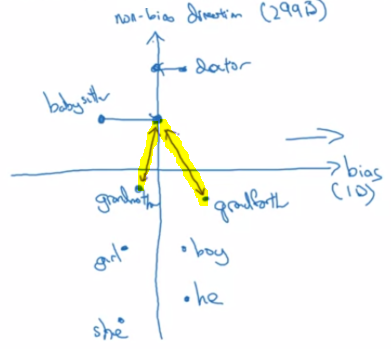 non-bias direction (299D)
doctor
babysitter
bias
(1D)
grandmother
grandfather
girl
boy
he
she